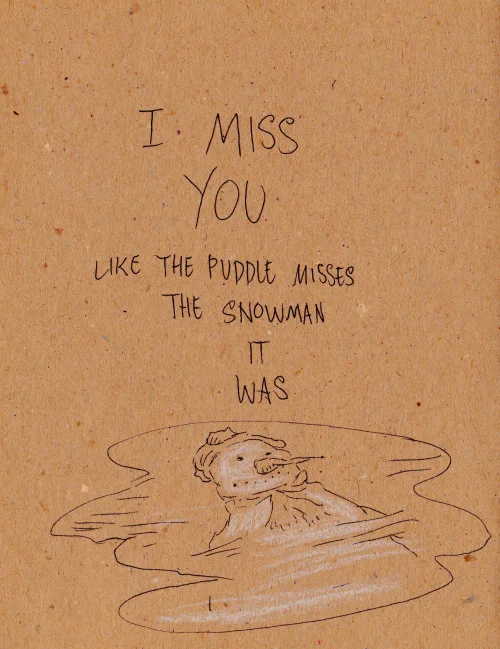 I MISS
YOU
LIKE THE PUDDLE MISSES
THE SNOWMAN
IT
WAS